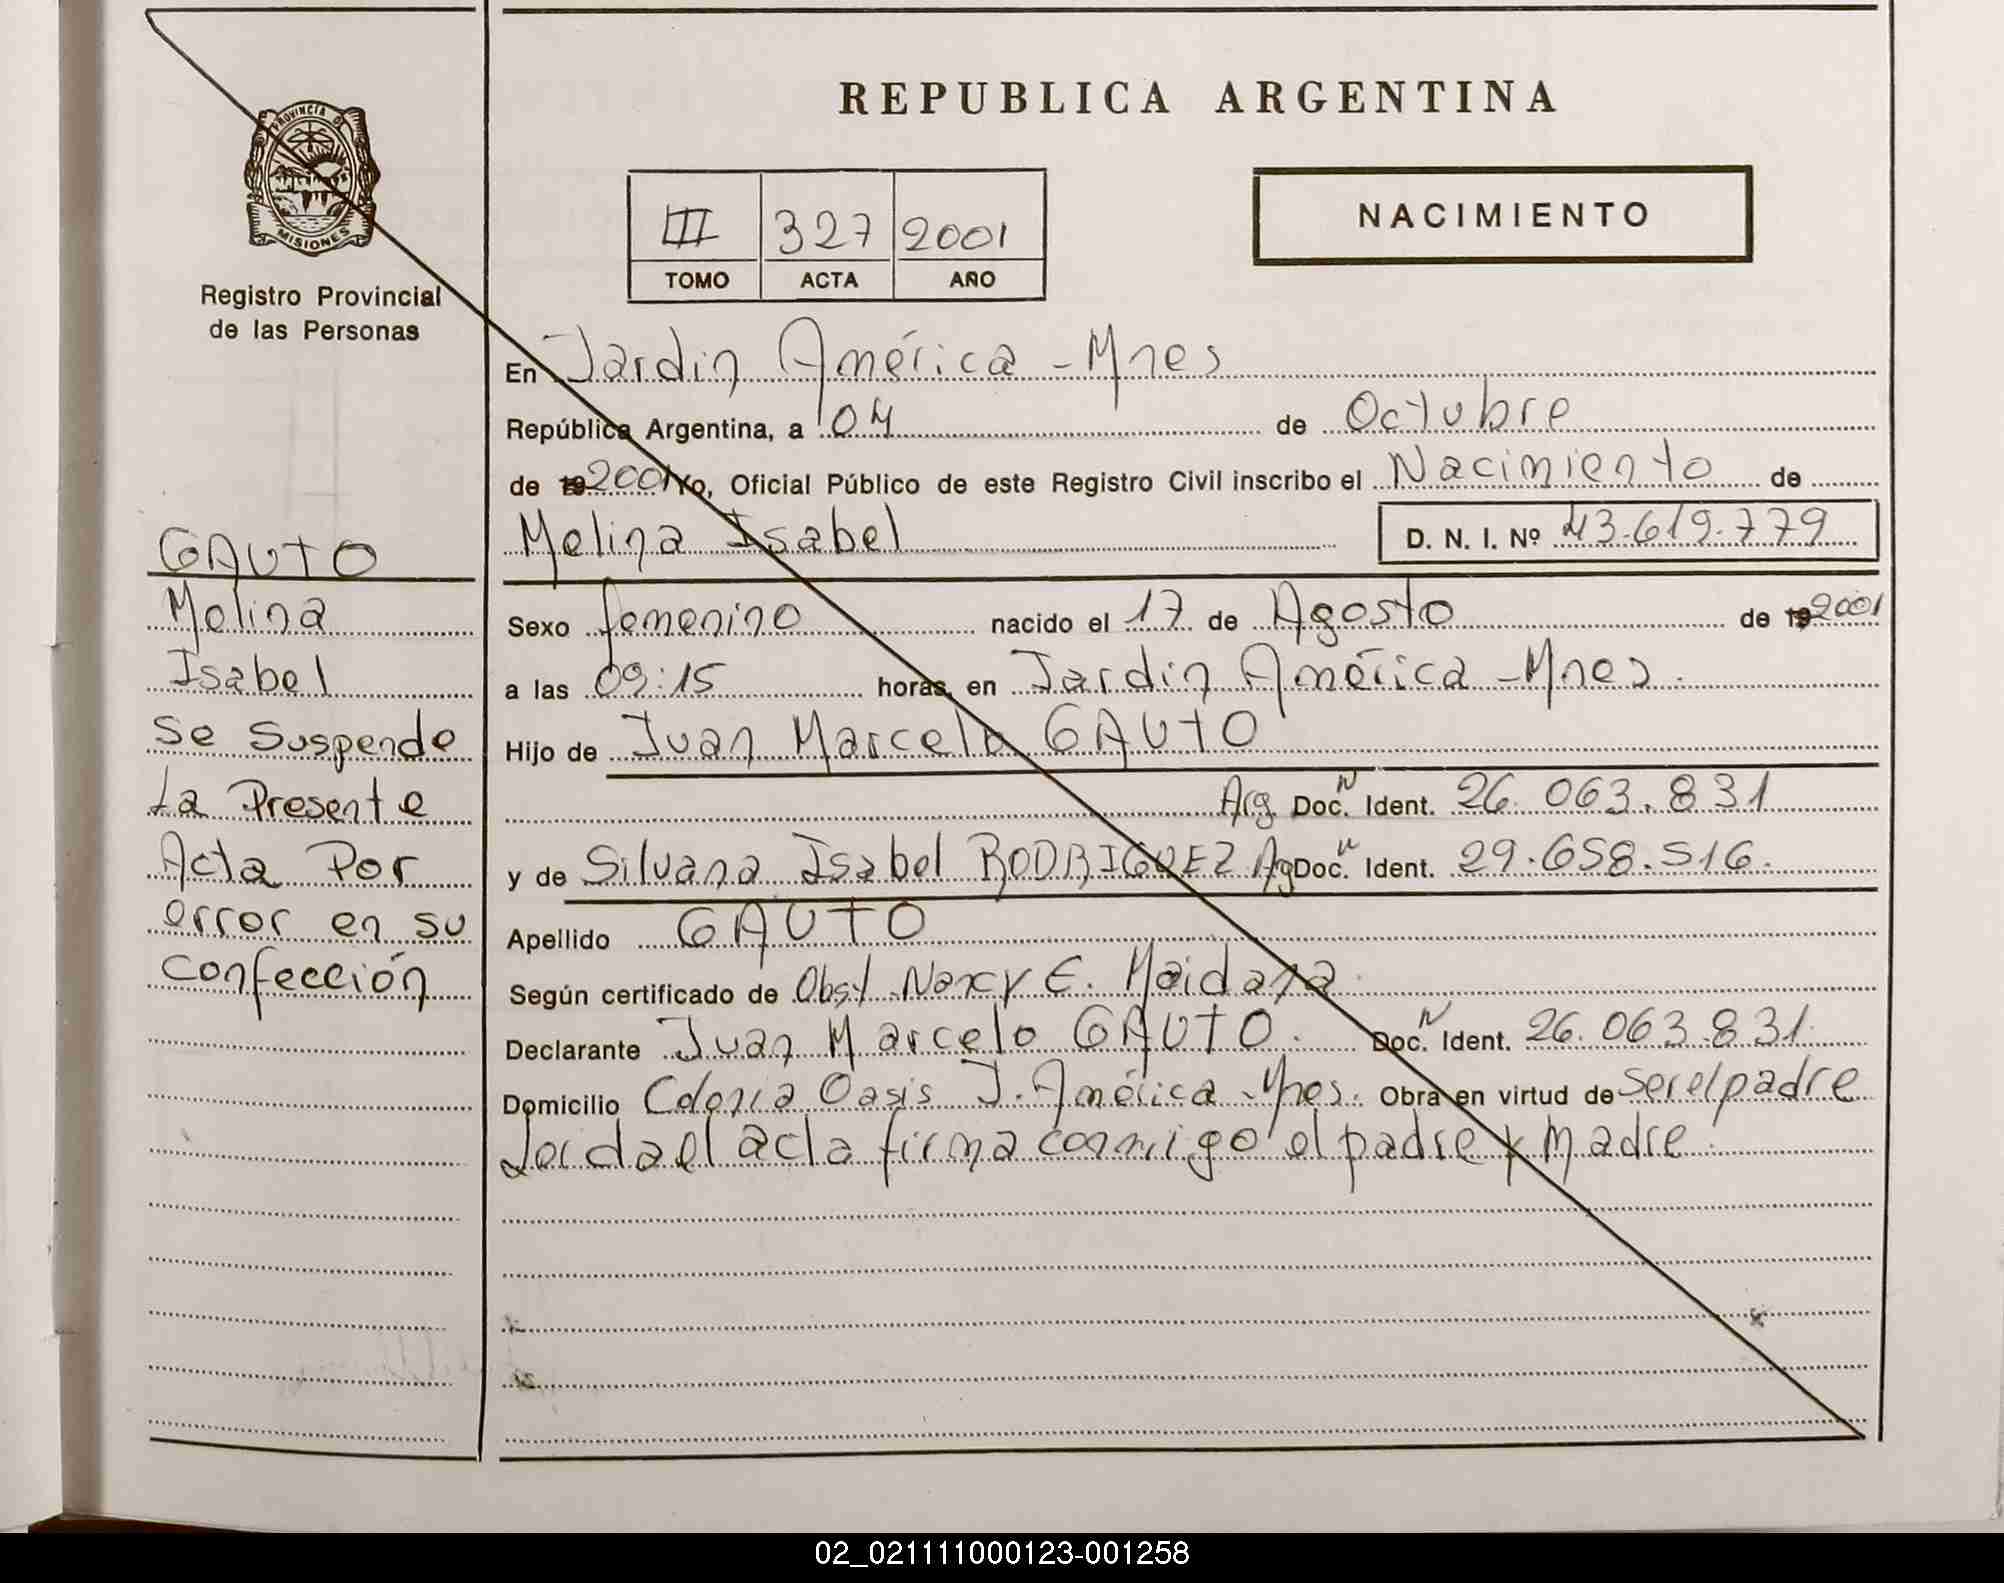 REPUBLICA ARGENTINA
PROVINCIA DE
MISIONES
Registro Provincial
de las Personas
III 327 2001
TOMO ACTA AÑO
NACIMIENTO
En Jardin América - Mnes
República Argentina, a 04 de Octubre
de 19 2001 Yo, Oficial Público de este Registro Civil inscribo el Nacimiento de
Melina Isabel D. N. I. Nº 43.619.779
Sexo femenino nacido el 17 de Agosto de 19 2001
a las 09:15 horas, en Jardin América - Mnes.
Hijo de Juan Marcelo GAUTO
Arg Doc. N Ident. 26.063.831
y de Silvana Isabel RODRIGUEZ Ag Doc. N Ident. 29.658.516.
Apellido GAUTO
Según certificado de Obst Nancy E. Maidana
Declarante Juan Marcelo GAUTO. Doc. N Ident. 26.063.831.
Domicilio Colonia Oasis J. América - Mnes. Obra en virtud de ser el padre
Leida el acta firma conmigo el padre y Madre.
GAUTO
Melina
Isabel
Se Suspende
La Presente
Acta Por
error en su
Confección
02_021111000123-001258